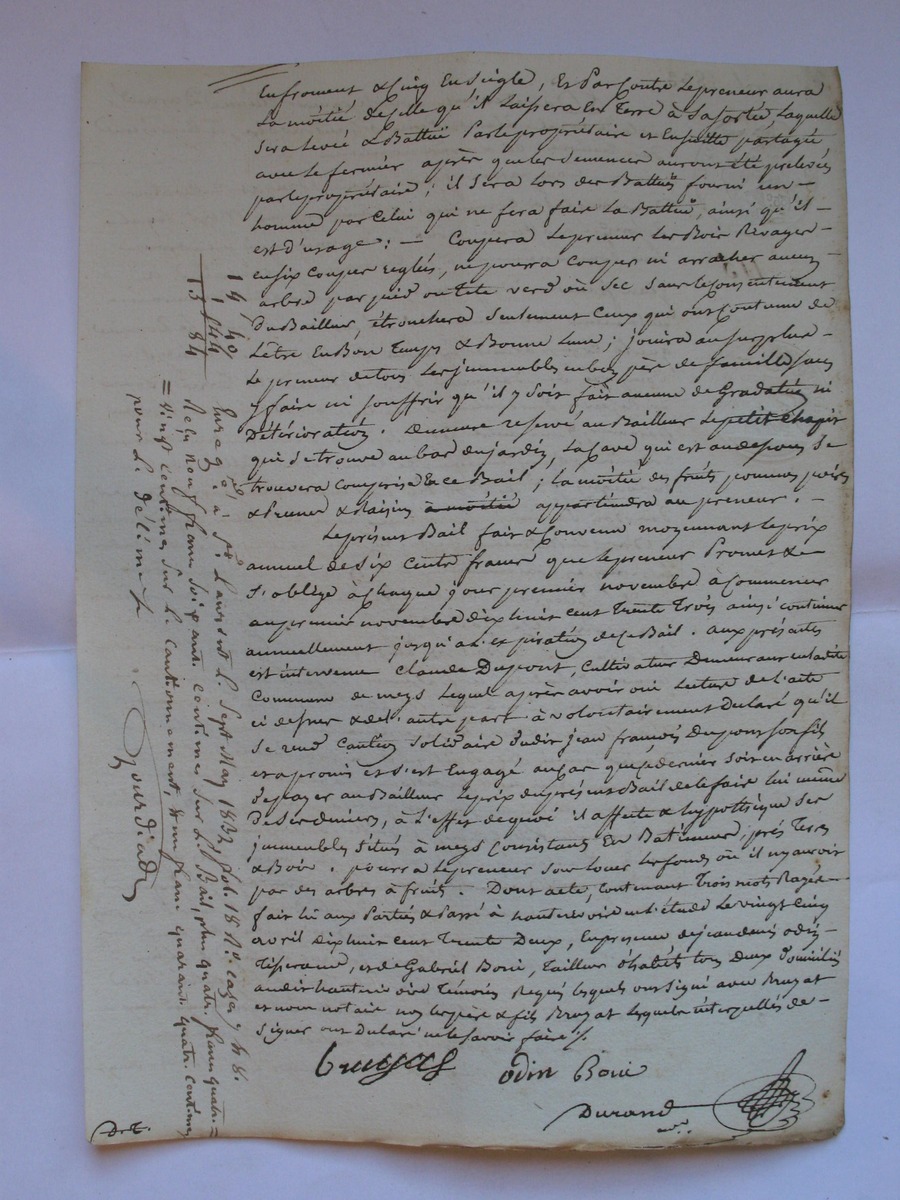 en froment & cinq en seigle, et par contre le preneur aura
la moitié de celle qu'il laissera en terre à sa sortie, laquelle
sera levée & battue par le propriétaire et ensuite partagée
avec le fermier après que les semences auront été prelevées
par le propriétaire; il sera lors des battues fourni un
homme par celui qui ne fera faire la battue, ainsi qu'il
est d'usage: — Coupera le preneur les Bois Rivages
en six coupes reglés, ne pourra couper ni arracher aucun
arbre par pied ou tete verd ou sec sans le consentement
du Bailleur, étronchera seulement ceux qui ont Coutume de
L'etre en Bons temps & Bonne Lune; jouira au surplus
le preneur de tous les jmmeubles en bon père de famille sans
y faire ni souffrir qu'il y soit fait aucune degradation ni
Détérioration. Demeure reservé au Bailleur le petit
qui se trouve au bas du jardin, la cave qui est au dessous se
trouvera comprise en ce Bail; la moitié des fruits pommes poires
& Prunes & Raisins à moitié appartiendra au preneur. —
Le présent Bail fait & Convenu moyennant le prix
annuel de six Cents francs que le preneur Promet &
s'oblige à chaque jour premier novembre à Commencer
au premier novembre dix huit cent Trente Trois ainsi continuer
annuellement jusqu'a l'expiration de ce Bail. aux présentes
est intervenu Claude Dupont, Cultivateur Demeurant en ladite
Commune de meys lequel après avoir oui lecture de l'acte
ci dessus & de l'autre part à volontairement declaré qu'il
se rend Caution solidaire dudit jean françois Dupont son fils
et a promis et s'est Engagé au cas que ce dernier soit en arrière
de payer au Bailleur le prix du présent Bail de le faire lui même
de ses deniers, à l'effet de quoi il affecte & hypothèque ses
jmmeubles situés à meys Consistant En Batiments, prés Terres
& Bois. pourra le preneur sous louer les fonds où il n'y auroit
pas des arbres à fruits. Dont acte, contenant Trois mots Rayés
fait lu aux Parties & Passé à hauterivoire en l'étude le vingt Cinq
avril dix huit cent Trente Deux, En presence de jean denis odin
Tisserand, et de Gabriel Boiri, Tailleur d'habits tous Deux domiciliés
audit hauterivoire Témoins Requis lesquels ont signé avec Bruyas
et nous notaire non les père & fils lesquels interpellés de
signer ont Declaré ne le savoir faire ./.
Bruyas odin Boiri
Durand
D.T.
14, 40
1, 44
13 84
Enregé à St Laurent le sept May 1832, folio 18 Ro. cases 7 & 8.
Reçu neuf francs soixante centimes sur le Bail, plus quatre francs quatre
vingt centimes sur le cautionnement, & un franc quarante quatre centimes
pour le décime.